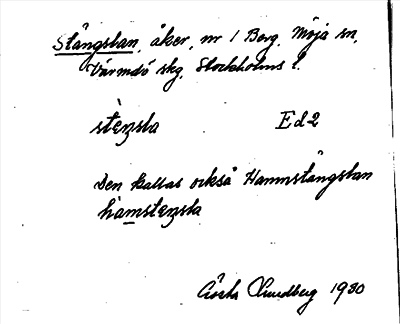 Stängslan, åker, nr 1 Berg, Möja sn,
Värmdö skg, Stockholms l.
stèŋsla Ed2
Den kallas också Hamnstängslan
hàmsteŋsla
Gösta Sundberg 1930